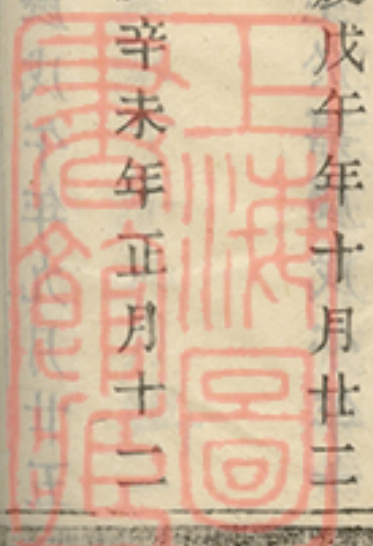 戊午年十月廿二
辛未年正月十二
上海圖
書館藏